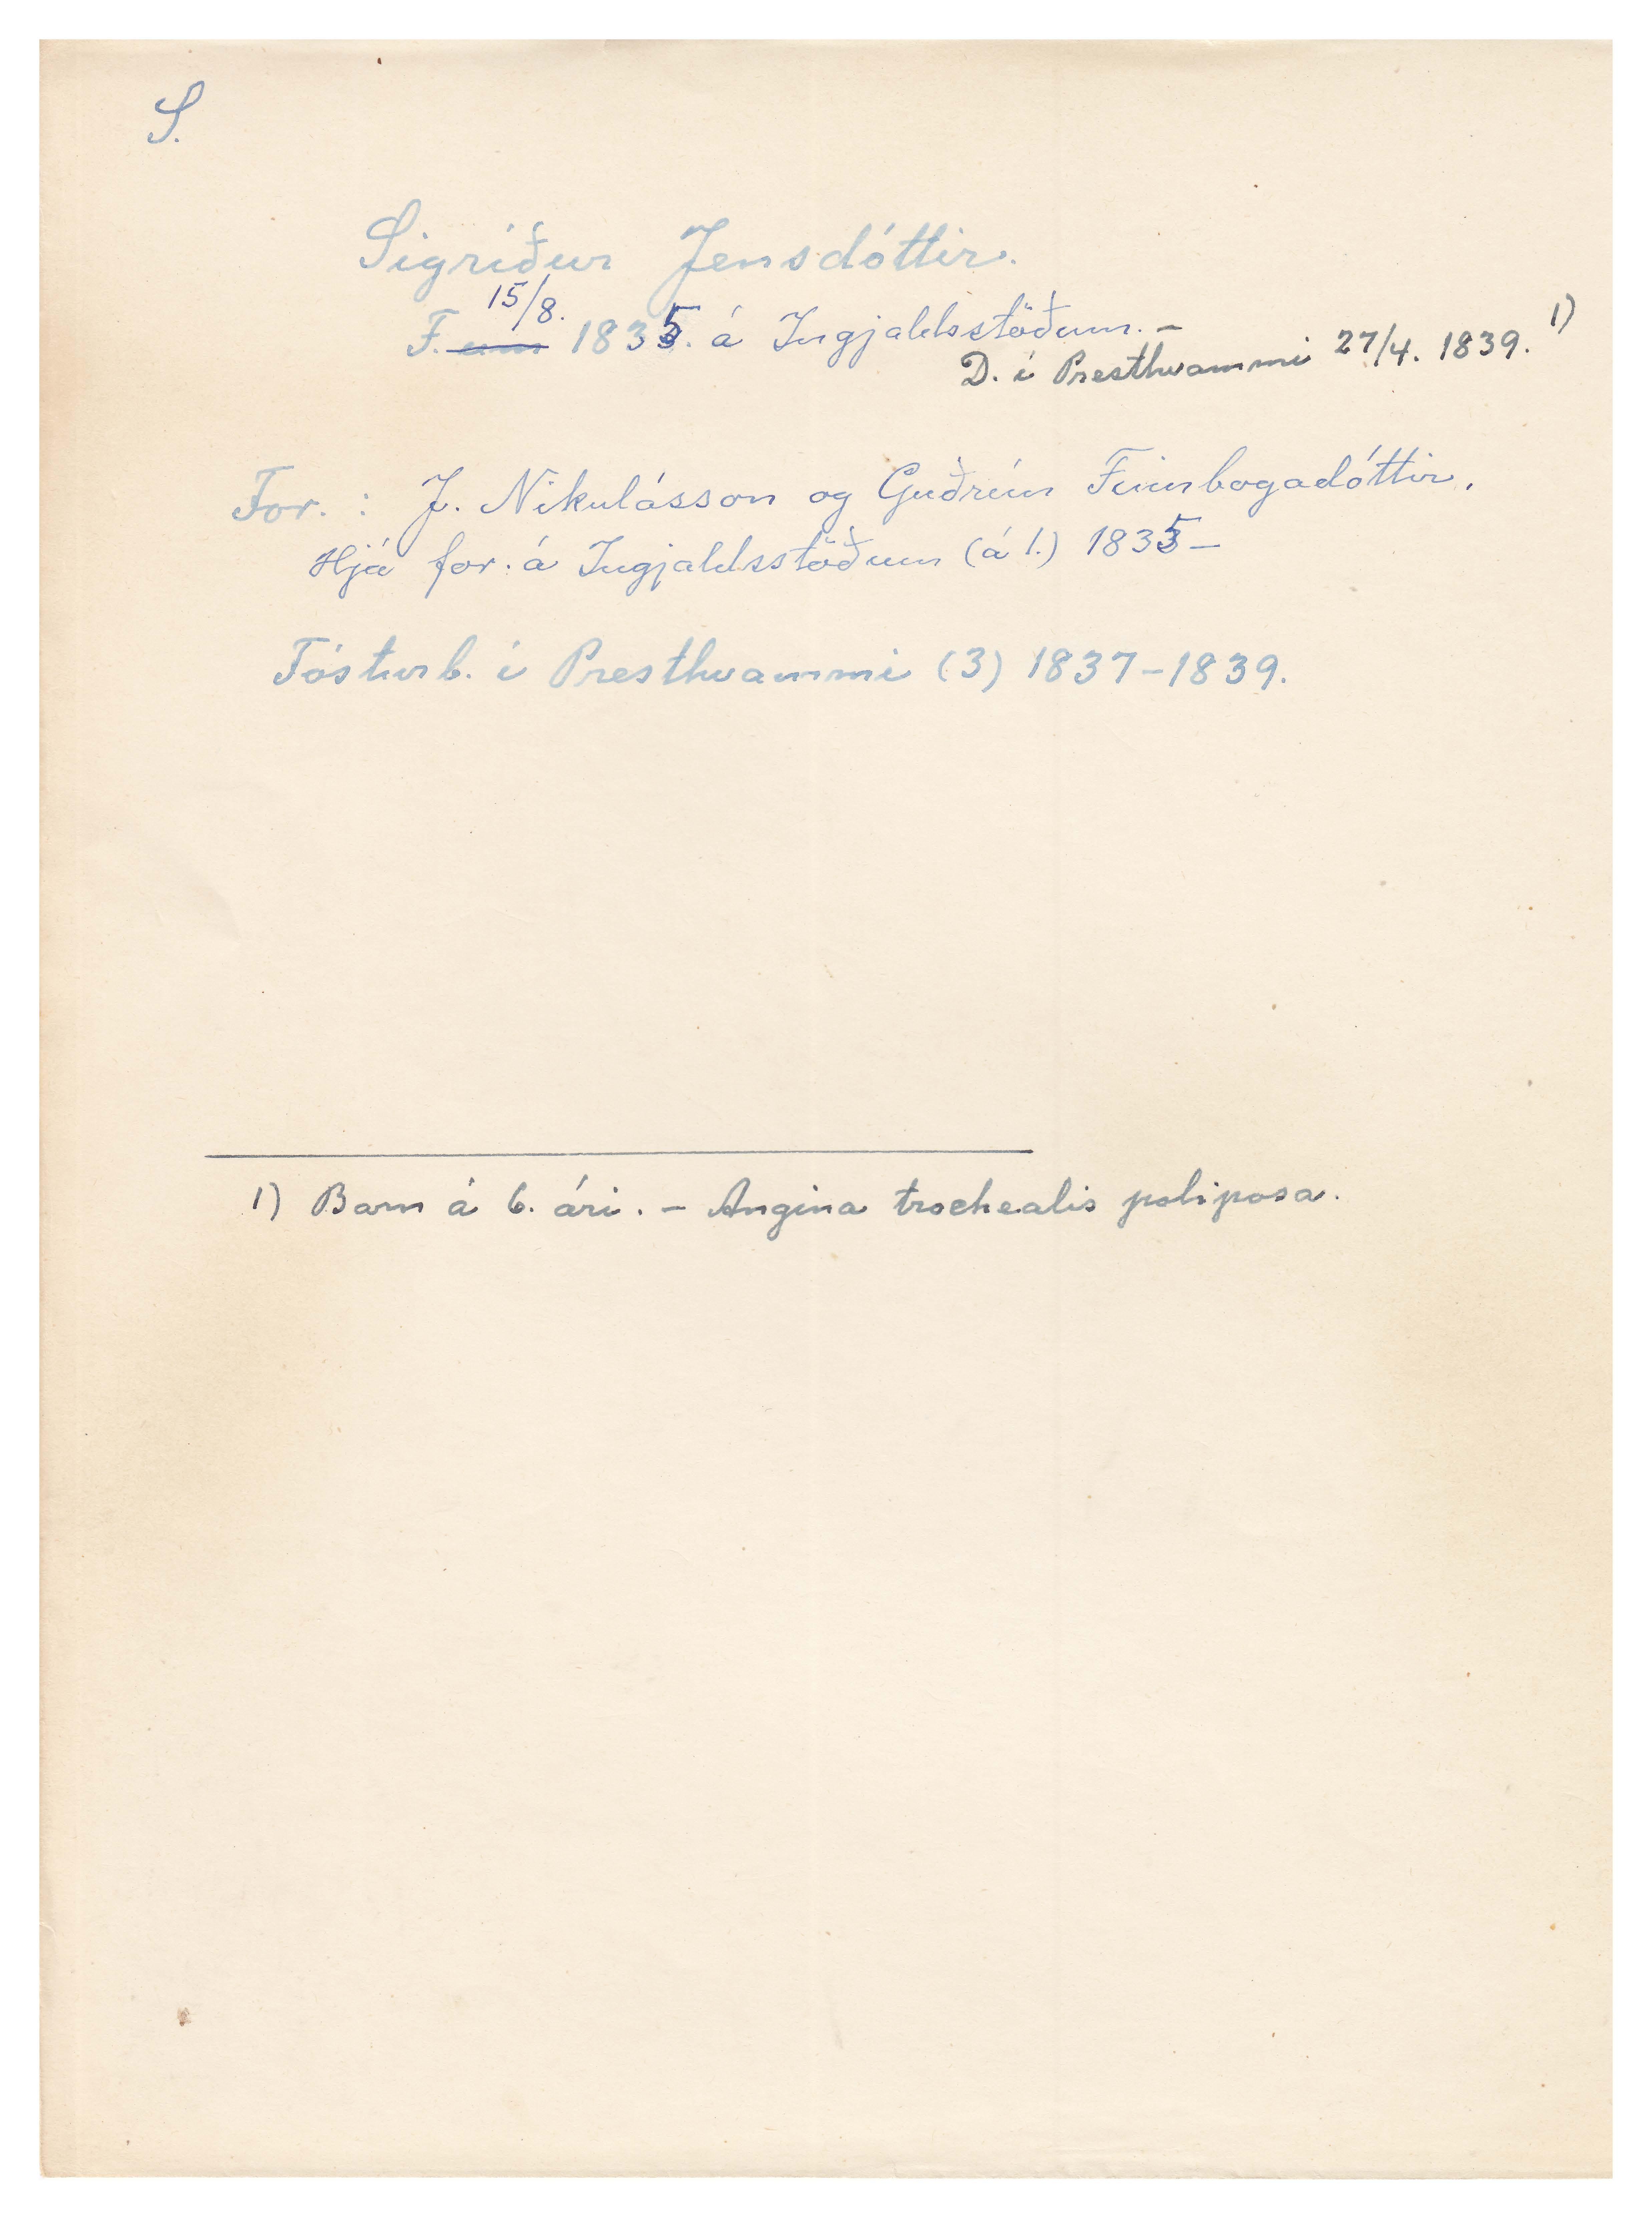 S.
Sigríður Jensdóttir.
15/8.
F. um 1835. á Ingjaldsstöðum. –
D. í Presthvammi 27/4. 1839. 1)
For. : J. Nikulásson og Guðrún Finnbogadóttir,
Hjá for. á Ingjaldsstöðum (á 1.) 1835 –
Fósturb. í Presthvammi (3) 1837–1839.
1) Barn á 6. ári. – Angina trochealis poliposa.